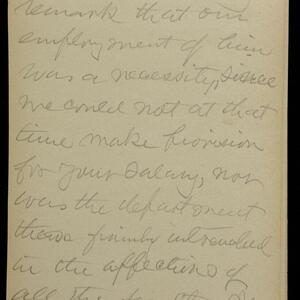 remark that our
employment of him
was a necessity, since
we could not at that
time make provision
for your salary, nor
was the department
firmly intrenched
in the affections of
all the